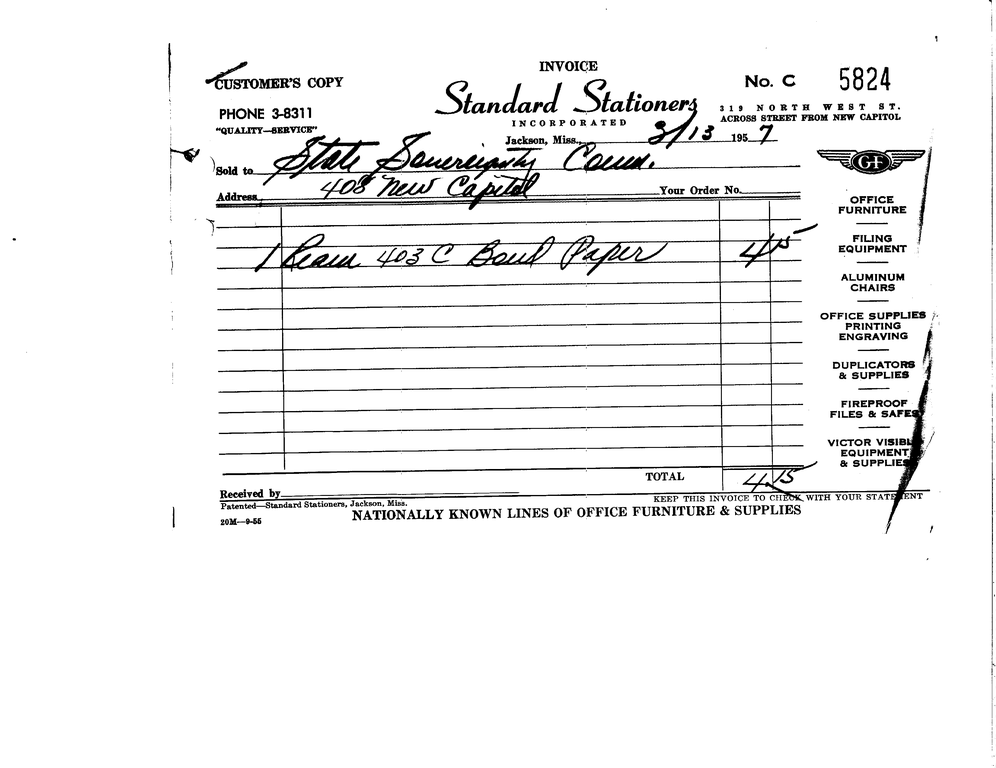 INVOICE
CUSTOMER'S COPY
No. C 5824
Standard Stationers
INCORPORATED
PHONE 3-8311
"QUALITY—SERVICE"
319 NORTH WEST ST.
ACROSS STREET FROM NEW CAPITOL
Jackson, Miss., 3/13 1957
Sold to State Sovereignty Comm.
Address 408 New Capitol Your Order No.
1 Ream 403 C Bond Paper 4 15
GF
OFFICE
FURNITURE
FILING
EQUIPMENT
ALUMINUM
CHAIRS
OFFICE SUPPLIES
PRINTING
ENGRAVING
DUPLICATORS
& SUPPLIES
FIREPROOF
FILES & SAFES
VICTOR VISIBLE
EQUIPMENT
& SUPPLIES
TOTAL 4 15
Received by
KEEP THIS INVOICE TO CHECK WITH YOUR STATEMENT
Patented—Standard Stationers, Jackson, Miss.
NATIONALLY KNOWN LINES OF OFFICE FURNITURE & SUPPLIES
20M—9-55